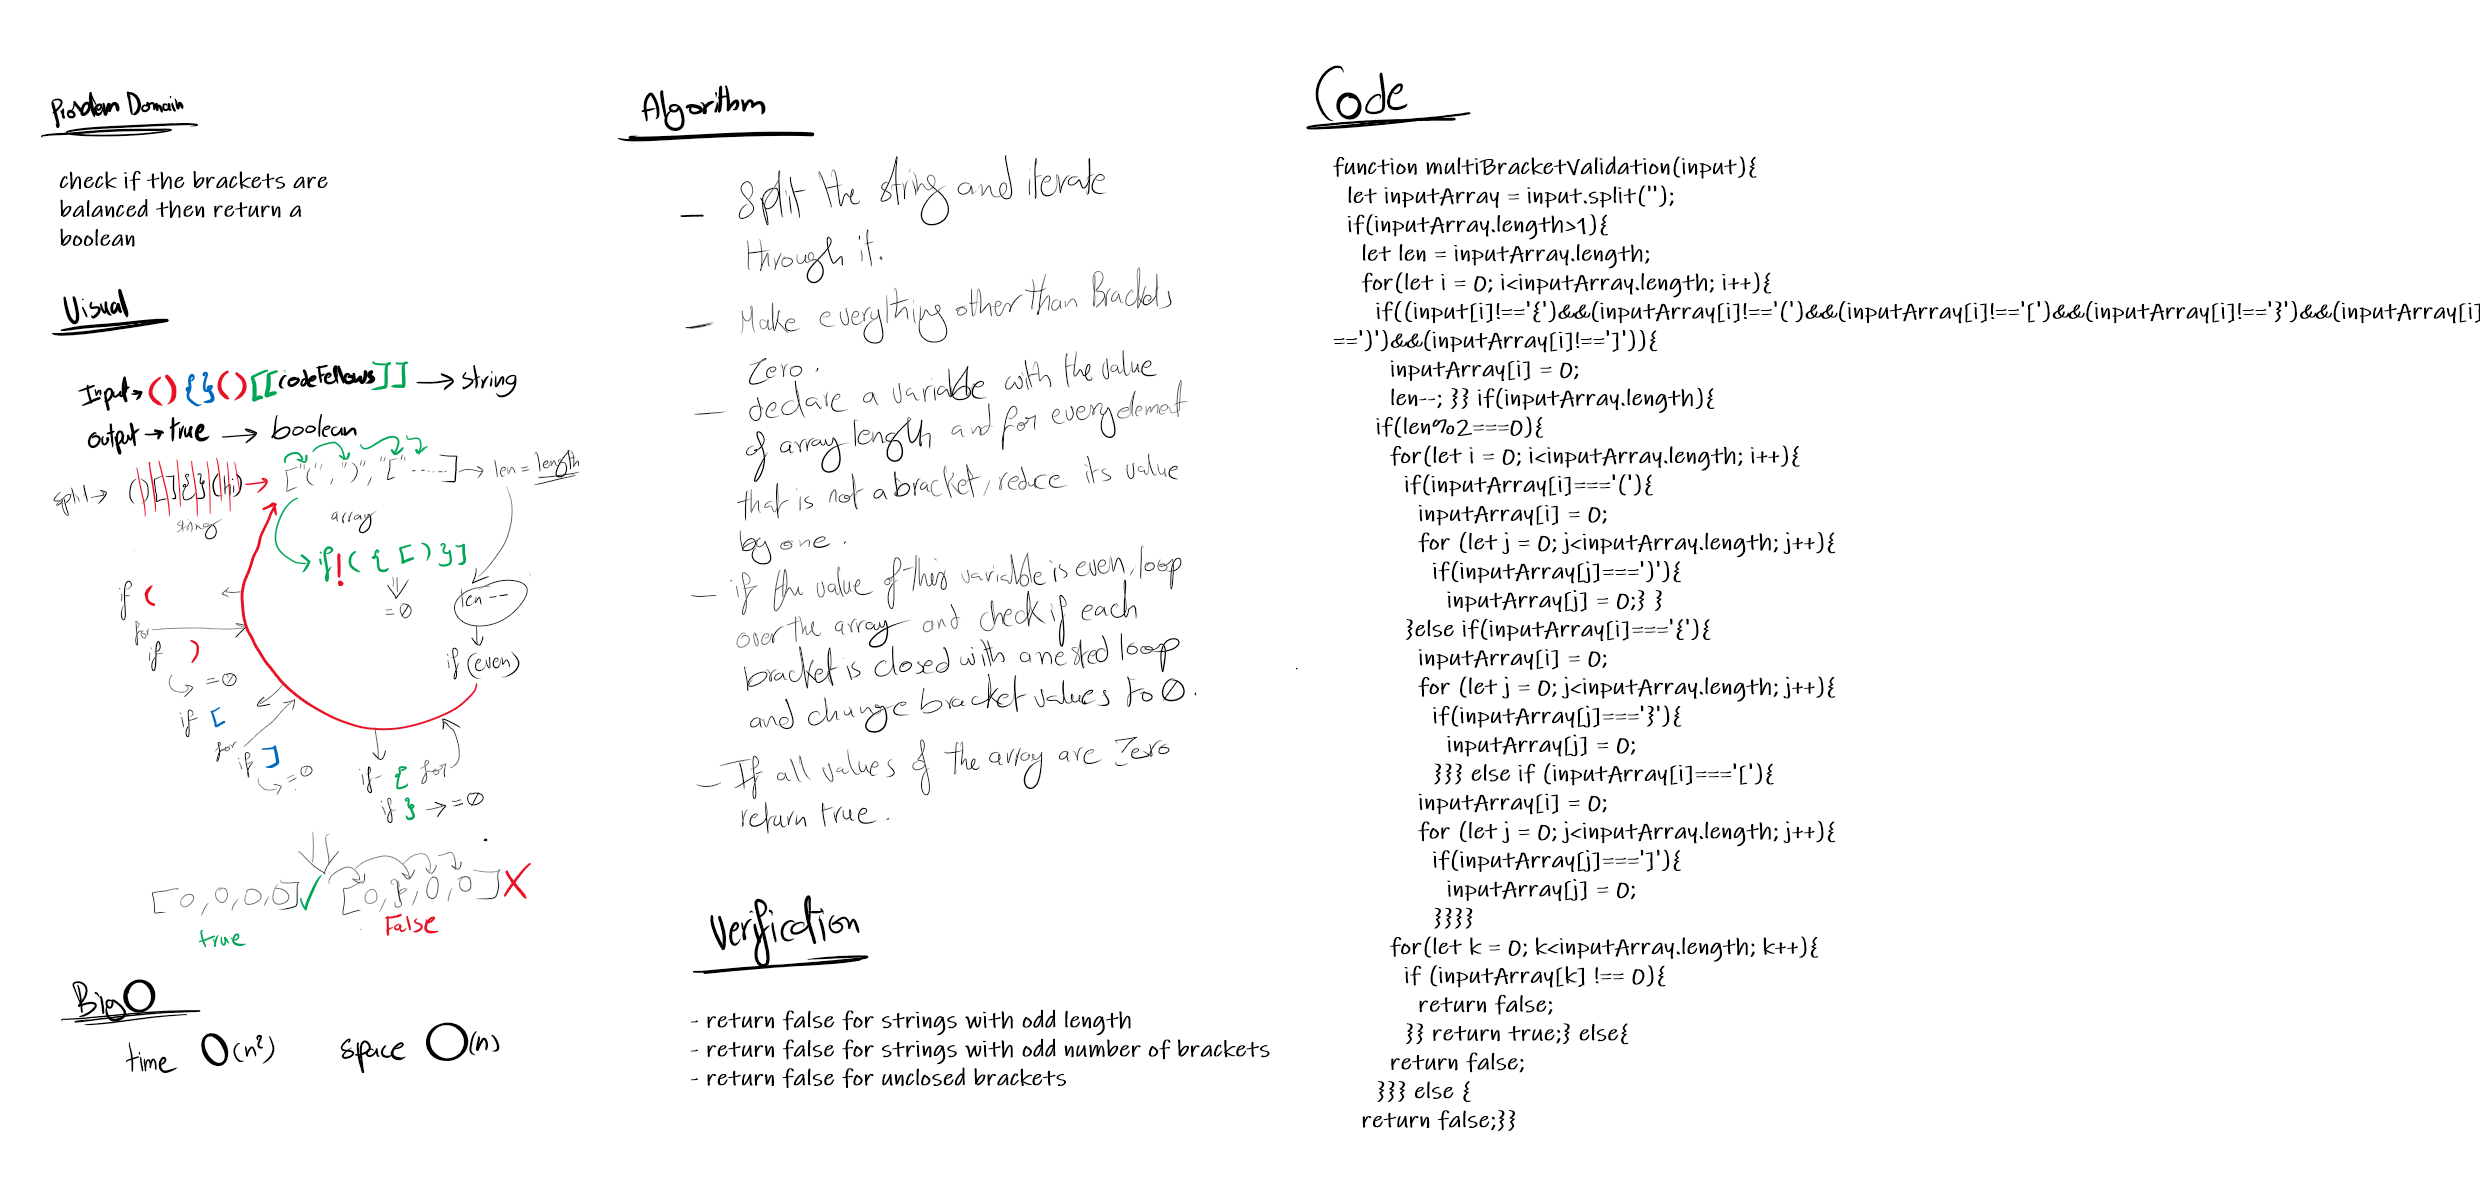 Problem Domain
check if the brackets are
balanced then return a
boolean
Visual
Input → () {} () [[codeFellows]] → string
output → true → boolean
split → ()[]{}(hi) → ["(", ")", "[" ......] → len = length
string
array
if ! ( { [ ) } ]
= 0
len --
if (even)
if (
for
if )
= 0
if [
for
if ]
= 0
if { for
if } → = 0
[0,0,0,0] ✓ [0,},0,0] X
true
False
Big O
time O(n²) space O(n)
Algorithm
- Split the string and iterate
through it.
- Make everything other than Brackets
Zero.
- declare a variable with the value
of array length and for every element
that is not a bracket, reduce its value
by one.
- if the value of this variable is even, loop
over the array and check if each
bracket is closed with a nested loop
and change bracket values to 0.
- If all values of the array are Zero
return true.
Verification
- return false for strings with odd length
- return false for strings with odd number of brackets
- return false for unclosed brackets
Code
function multiBracketValidation(input){
let inputArray = input.split('');
if(inputArray.length>1){
let len = inputArray.length;
for(let i = 0; i<inputArray.length; i++){
if((input[i]!=='{')&&(inputArray[i]!=='(')&&(inputArray[i]!=='[')&&(inputArray[i]!=='}')&&(inputArray[i]
==')')&&(inputArray[i]!==']')){
inputArray[i] = 0;
len--; }} if(inputArray.length){
if(len%2===0){
for(let i = 0; i<inputArray.length; i++){
if(inputArray[i]==='('){
inputArray[i] = 0;
for (let j = 0; j<inputArray.length; j++){
if(inputArray[j]===')'){
inputArray[j] = 0;} }
}else if(inputArray[i]==='{'){
inputArray[i] = 0;
for (let j = 0; j<inputArray.length; j++){
if(inputArray[j]==='}'){
inputArray[j] = 0;
}}} else if (inputArray[i]==='['){
inputArray[i] = 0;
for (let j = 0; j<inputArray.length; j++){
if(inputArray[j]===']'){
inputArray[j] = 0;
}}}}
for(let k = 0; k<inputArray.length; k++){
if (inputArray[k] !== 0){
return false;
}} return true;} else{
return false;
}}} else {
return false;}}